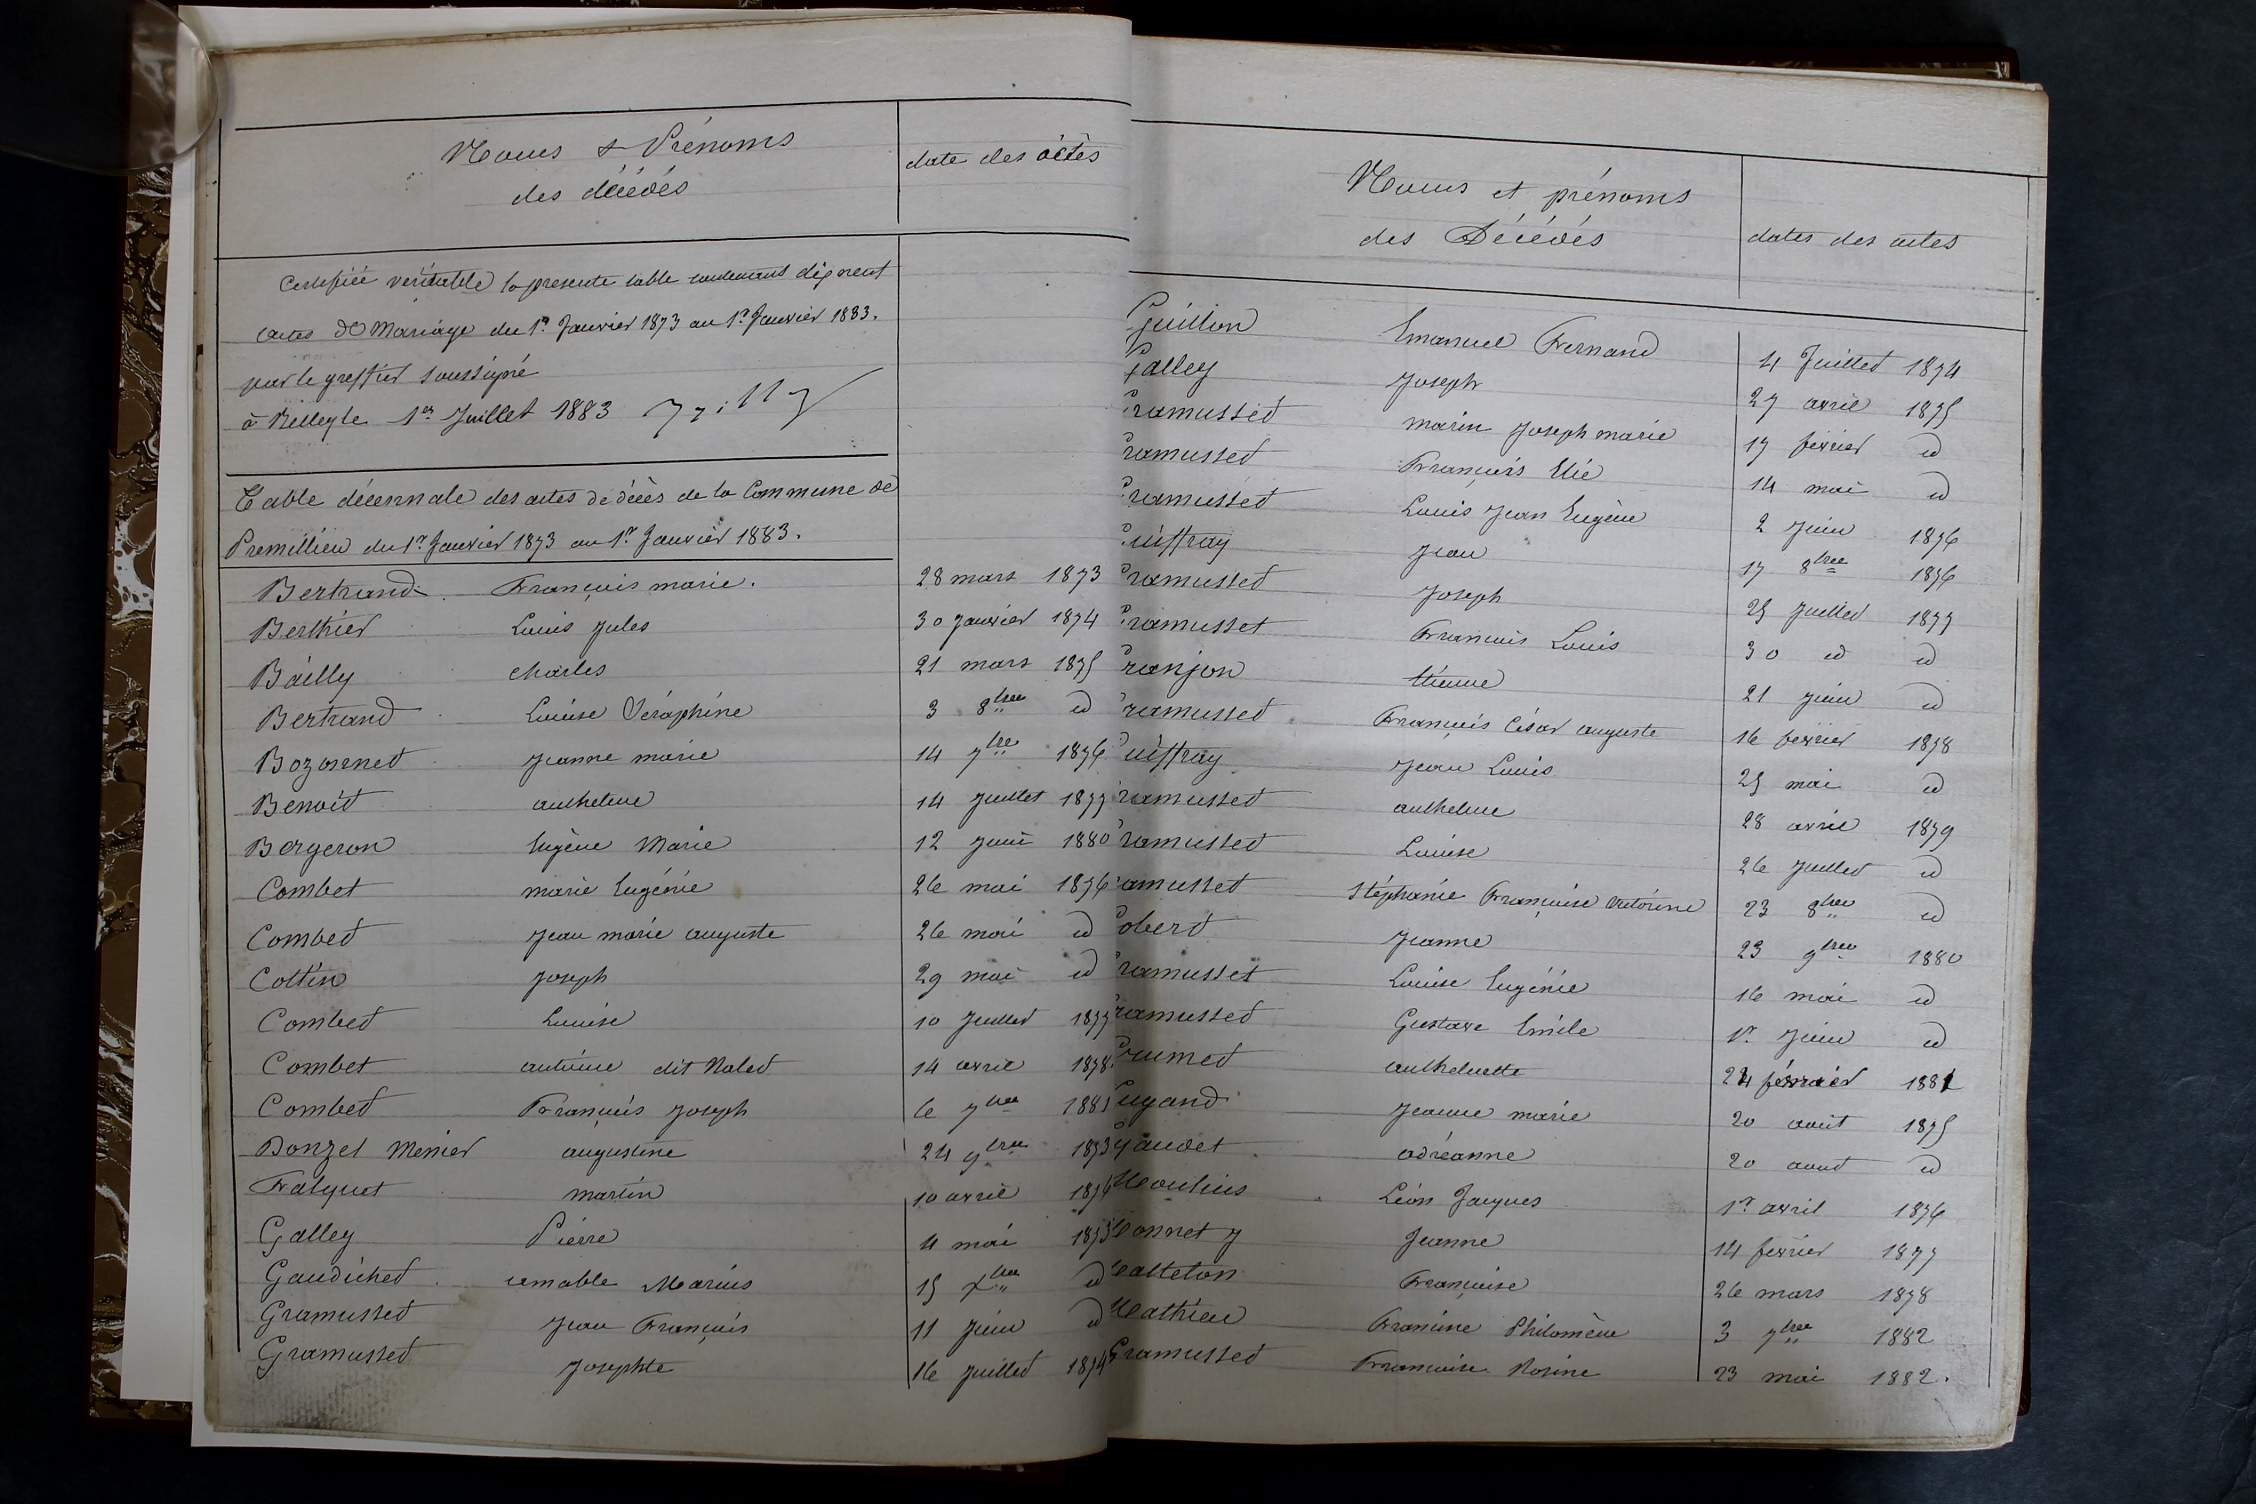 Noms & Prénoms
des décédés
date des actes
Certifiée véritable la présente table contenant dix neuf
actes de Mariage du 1er Janvier 1873 au 1er Janvier 1883.
par le greffier soussigné
à Belley le 1er Juillet 1883
Table décennale des actes de décès de la Commune de
Premillieu du 1er Janvier 1873 au 1er Janvier 1883.
Bertrand François marie. 28 mars 1873
Berthier Louis Jules 30 Janvier 1874
Bailly charles 21 mars 1875
Bertrand Louise Séraphine 3 8bre id
Bozonnet Jeanne marie 14 7bre 1876
Benoit anthelme 14 Juillet 1877
Bergeron Eugène Marie 12 Juin 1880
Combet marie Eugénie 26 mai 1876
Combet Jean marie auguste 26 mai id
Cottin Joseph 29 mai id
Combet Louise 10 Juillet 1877
Combet antoine dit Nolet 14 avril 1878
Combet François Joseph 6 7bre 1881
Donzel Menier augustine 24 9bre 1873
Falquet martin 10 avril 1876
Galley Pierre 4 mai 1873
Gaudichet aimable Marius 15 Xbre id
Gramusset Jean François 11 Juin id
Gramusset Josephte 16 Juillet 1874
Noms et prénoms
des Décédés
dates des actes
Guillon Emanuel Fernand 4 Juillet 1874
Galley Joseph 27 avril 1875
ramusset marin Joseph marie 17 février id
ramusset François Elie 14 mai id
ramusset Louis Jean Eugène 2 Juin 1876
uiffray Jean 17 8bre 1876
ramusset Joseph 25 Juillet 1877
ramusset François Louis 30 id id
ranjon Etienne 21 Juin id
ramusset François César auguste 16 février 1878
uiffray Jean Louis 25 mai id
ramusset anthelme 28 avril 1879
ramusset Louise 26 Juillet id
amusset Stéphanie Françoise Victorine 23 8bre id
obert Jeanne 23 9bre 1880
ramusset Louise Eugénie 16 mai id
ramusset Gustave Emile 1er Juin id
rumet anthelmette 24 février 1881
ugand Jeanne marie 20 aout 1875
Gaudet adréanne 20 aout id
Moulins Léon Jacques 1er avril 1876
onnet y Jeanne 14 février 1877
alleton Françoise 26 mars 1878
Mathieu Francine Philomène 3 7bre 1882
Gramusset Françoise Rosine 23 mai 1882.